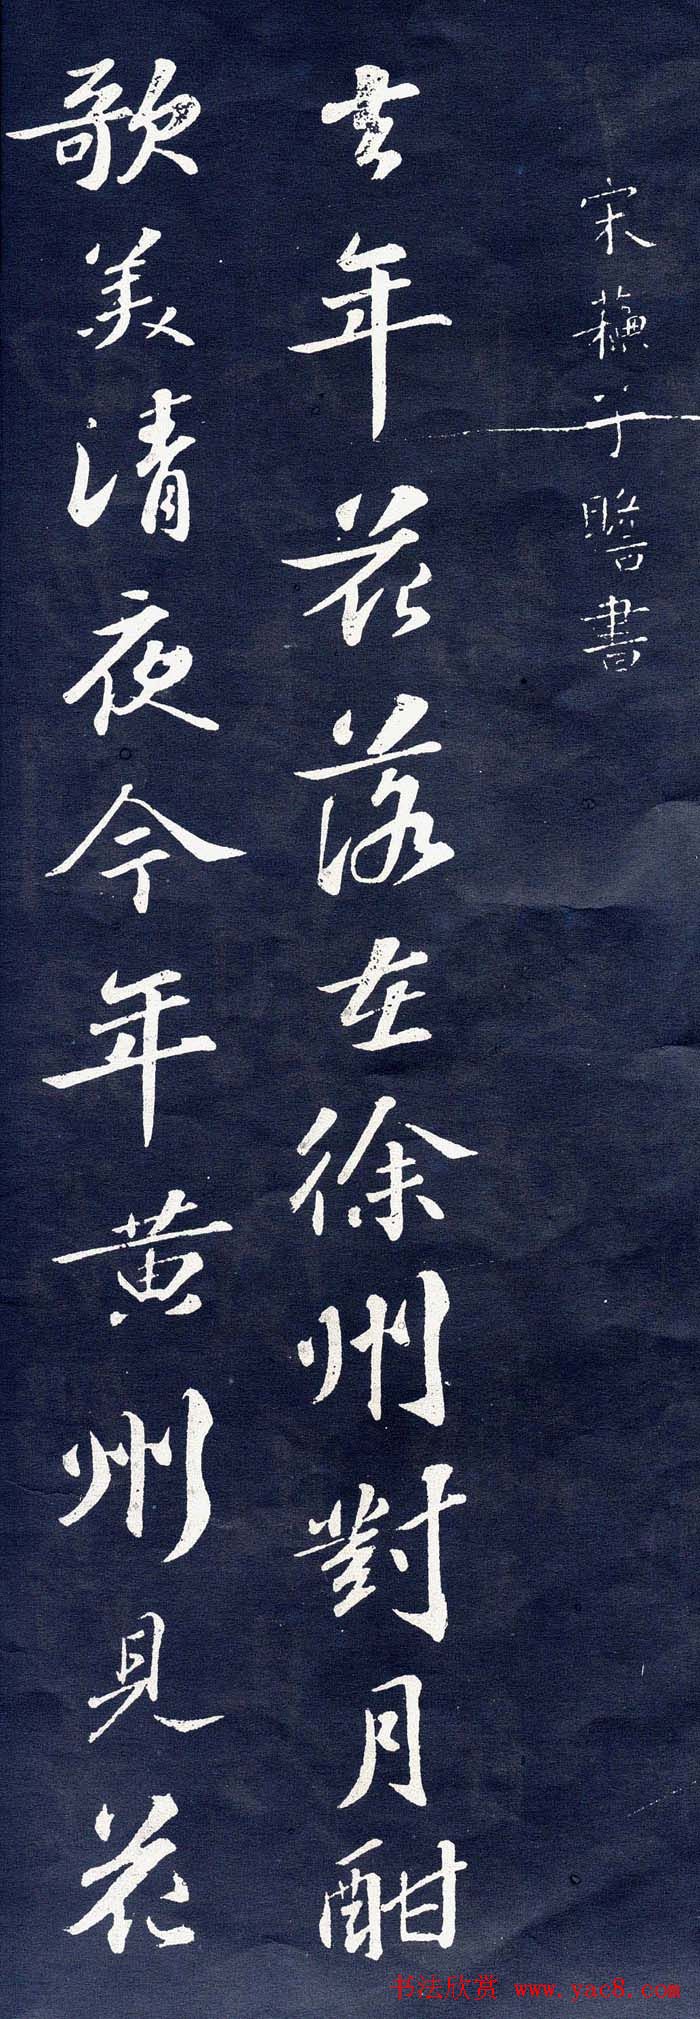 宋蘇子瞻書
去年花落在徐州對月酣
歌美清夜今年黄州見花
书法欣赏 www.yac8.com